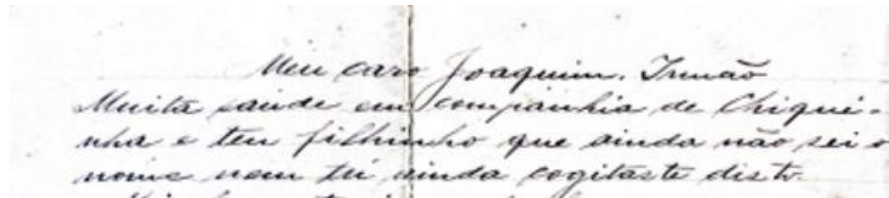 Meu caro Joaquim. Irmão
Muita saude em companhia de Chiqui-
nha e teu filhinho que ainda não sei o
nome nem tu ainda cogitaste disto.